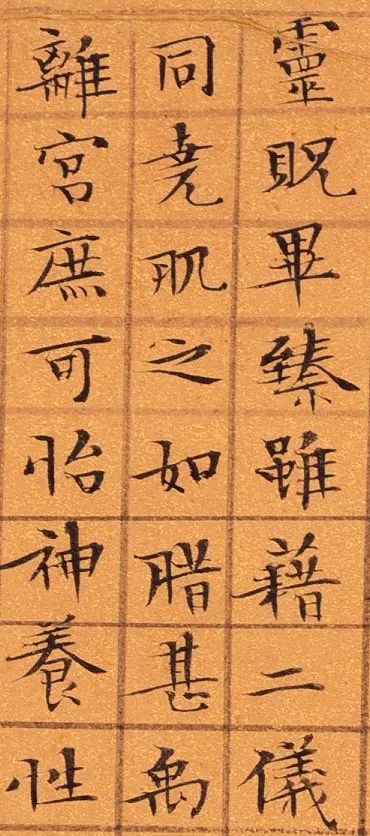 靈貺畢臻雖藉二儀
同堯肌之如腊甚禹
離宮庶可怡神養性